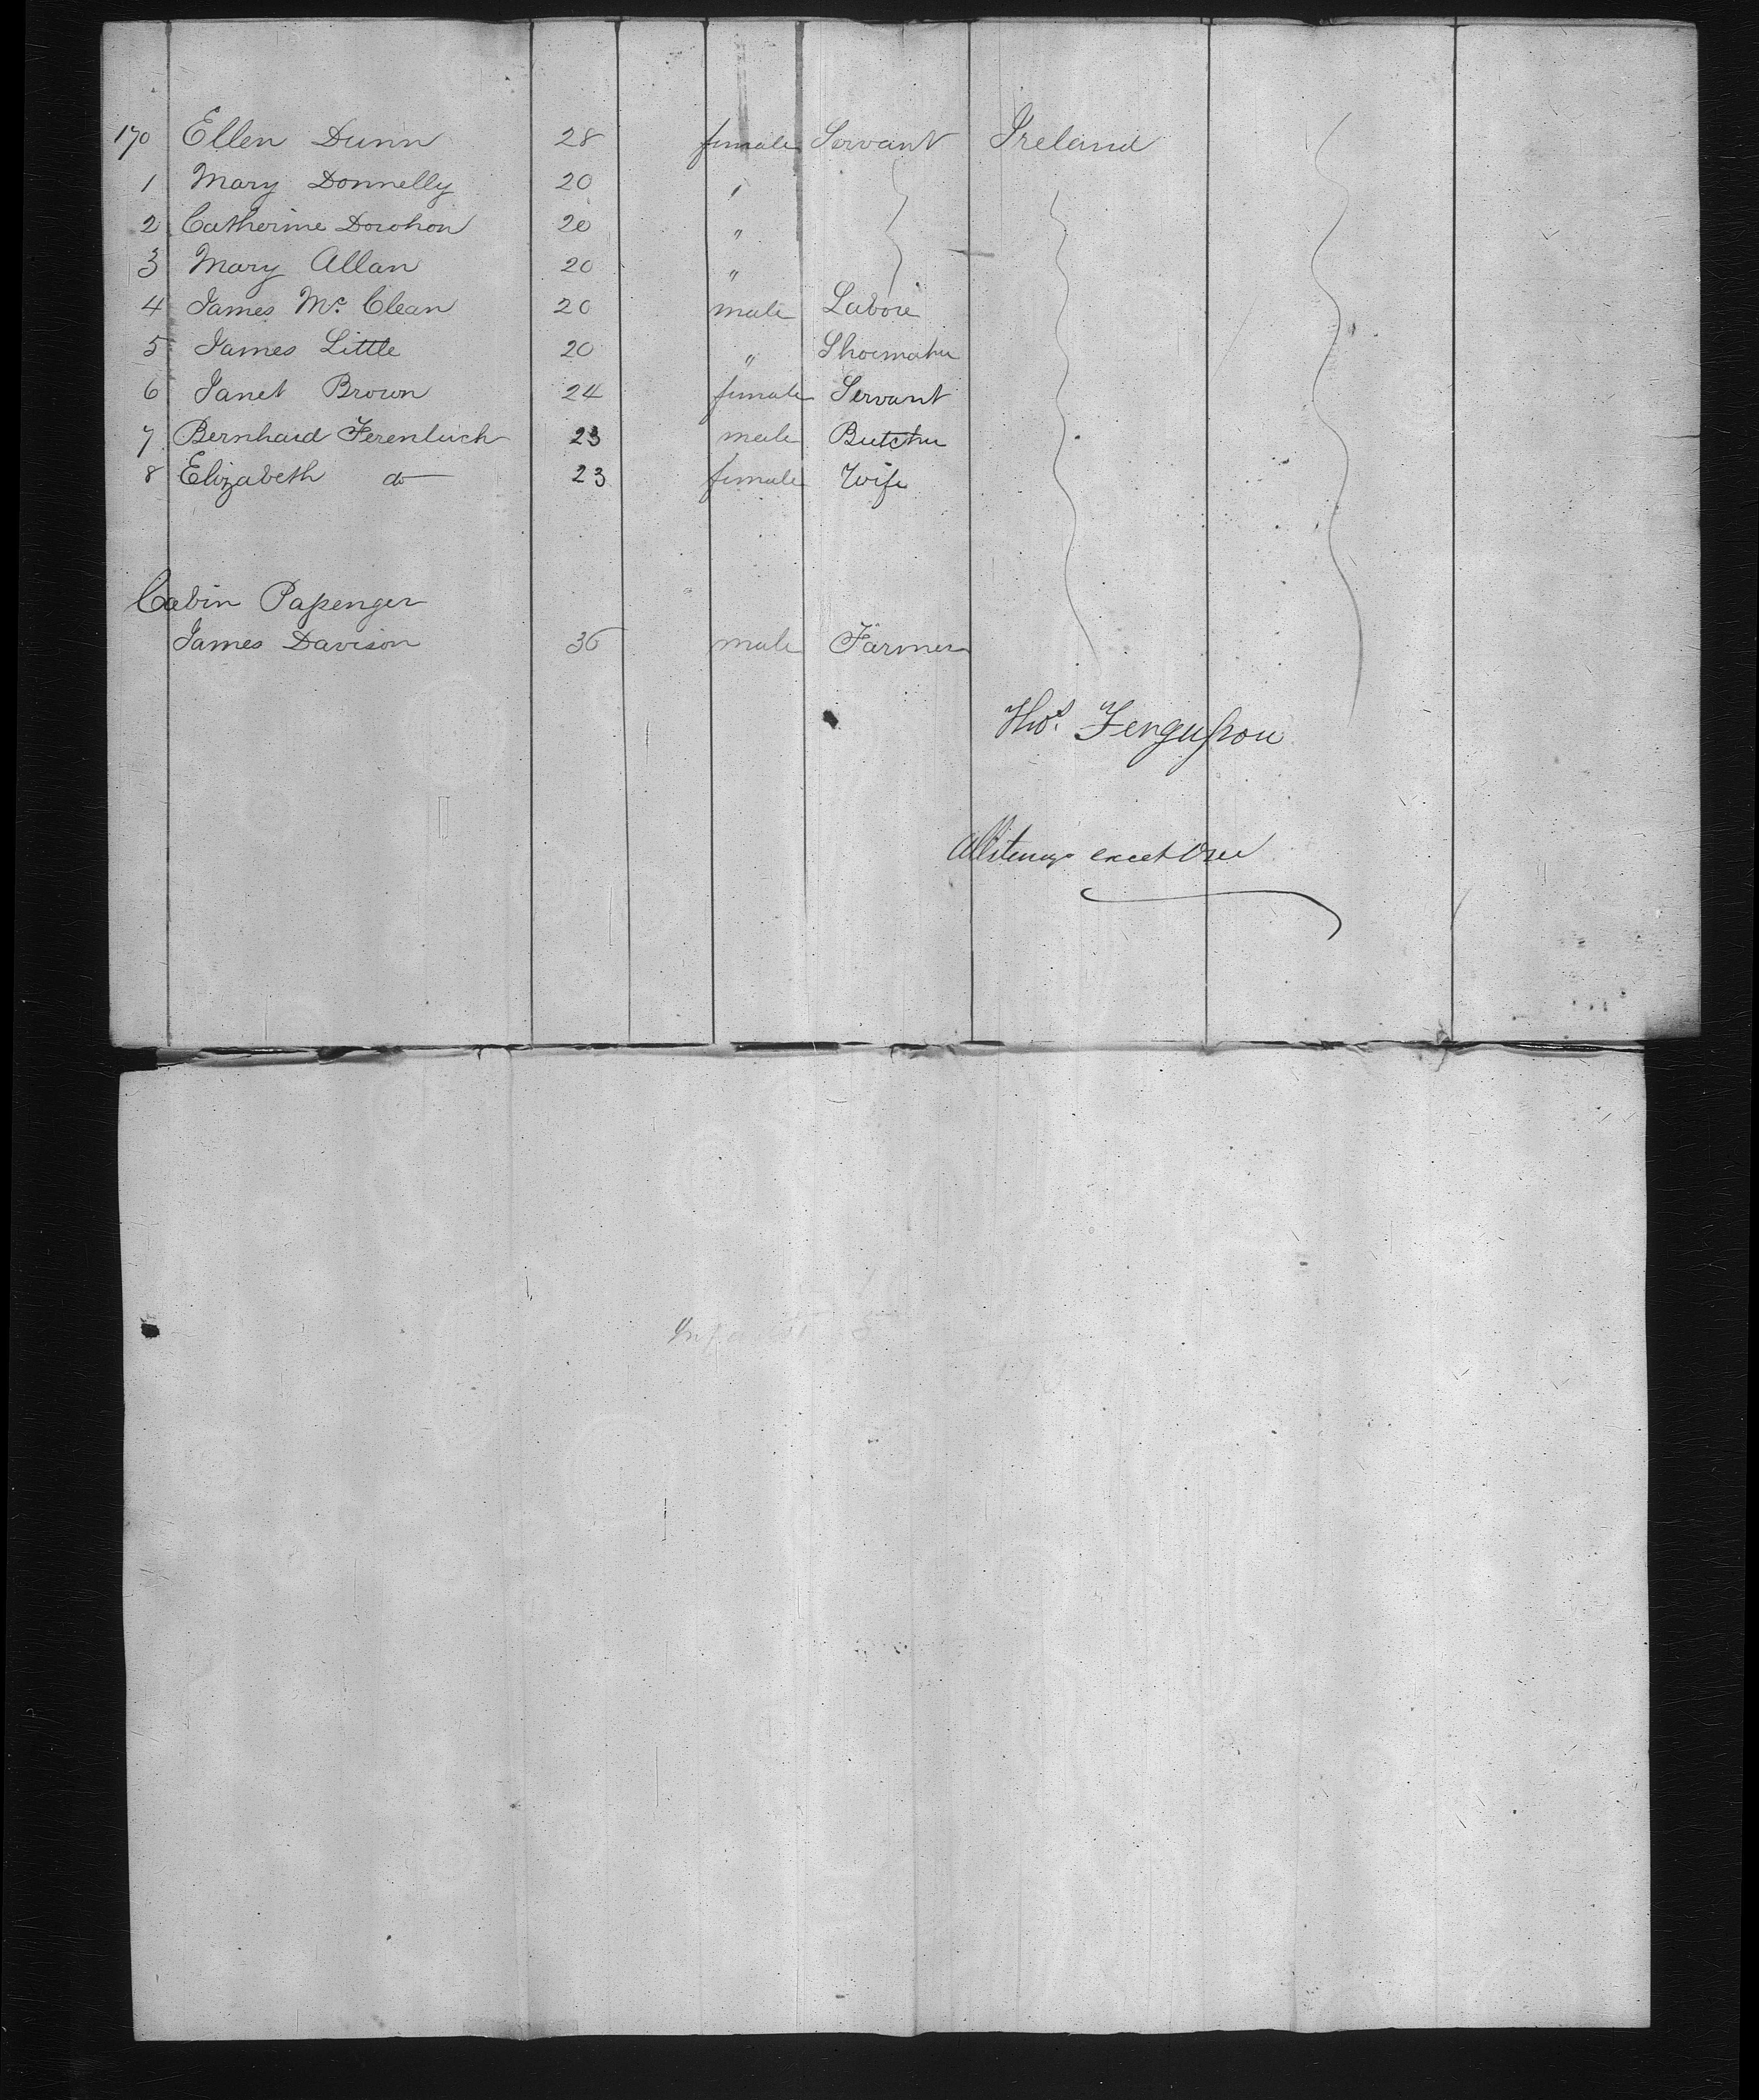 170 Ellen Dunn 28 female Servant Ireland
1 Mary Donnelly 20 "
2 Catherine 20 "
3 Mary Allan 20 "
4 James Mc. Clean 20 male
5 James Little 20 " Shoemaker
6 Janet Brown 24 female Servant
7 Bernhard 23 male Butcher
8 Elizabeth do 23 female Wife
Cabin Paſsenger
James Davison 36 male Farmer
Thos. Ferguſson